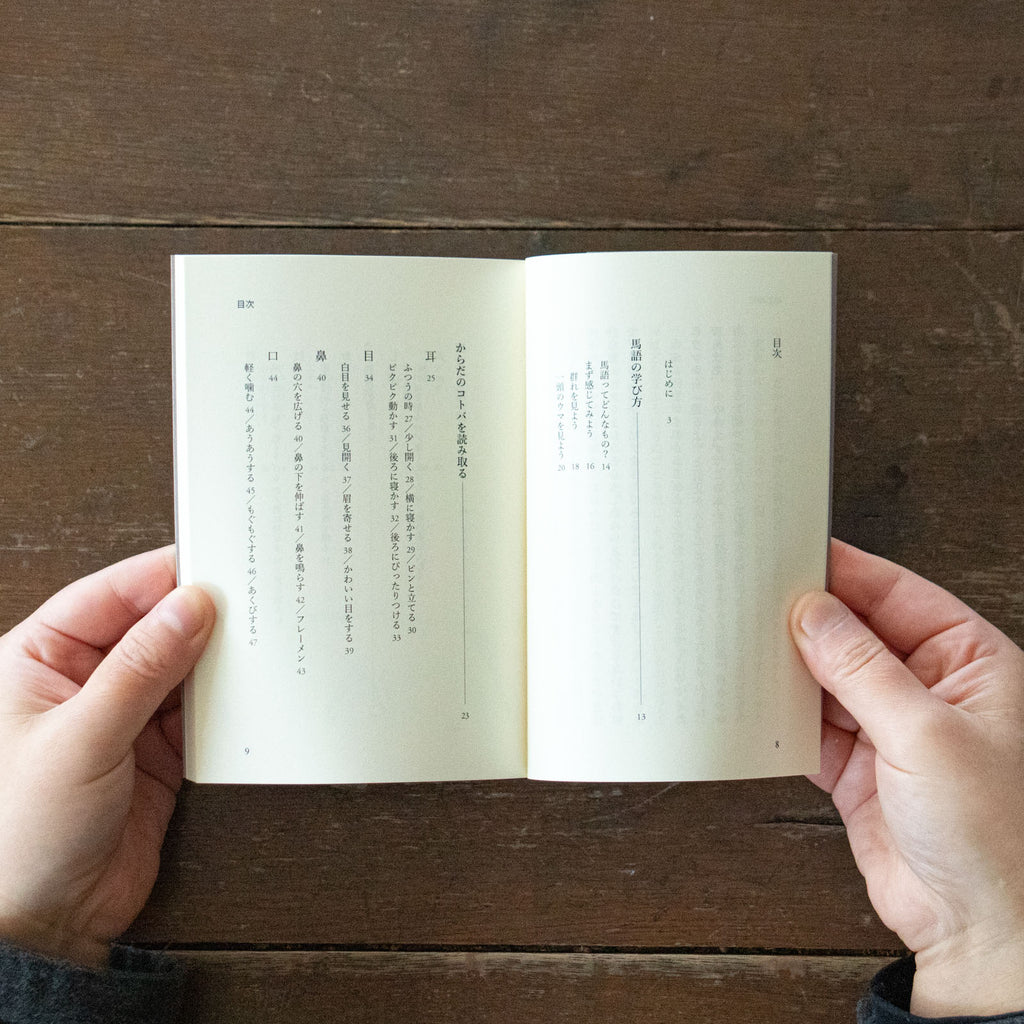 目次
はじめに 3
馬語の学び方 13
馬語ってどんなもの? 14
まず感じてみよう 16
群れを見よう 18
一頭のウマを見よう 20
8
目次
からだのコトバを読み取る 23
耳 25
ふつうの時 27/少し開く 28/横に寝かす 29/ピンと立てる 30
ピクピク動かす 31/後ろに寝かす 32/後ろにぴったりつける 33
目 34
白目を見せる 36/見開く 37/眉を寄せる 38/かわいい目をする 39
鼻 40
鼻の穴を広げる 40/鼻の下を伸ばす 41/鼻を鳴らす 42/フレーメン 43
口 44
軽く噛む 44/あうあうする 45/もぐもぐする 46/あくびする 47
9